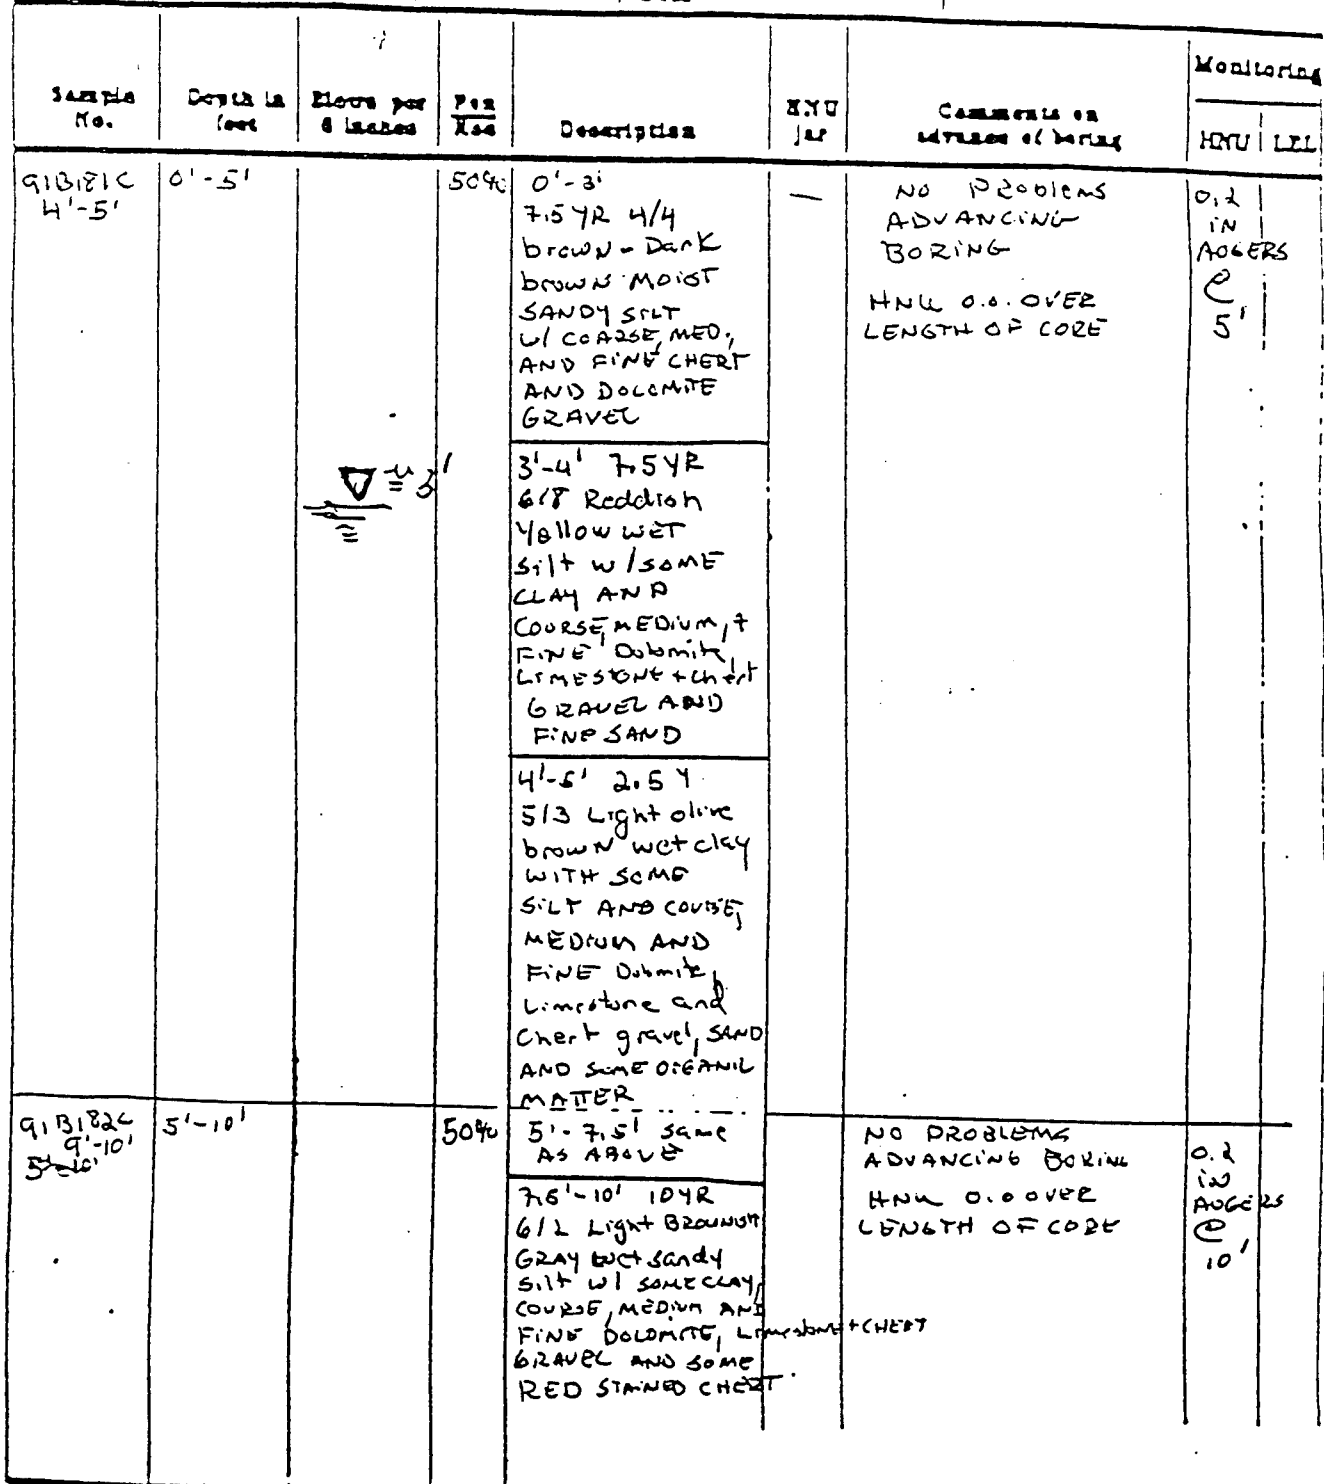 Sample No.
Depth in feet
Blows per 6 inches
Pen
Rec
Description
HNU jar
Comments on advance of boring
Monitoring
HNU
LEL
91B181C
4'-5'
0'-5'
50%
0'-3'
7.5 YR 4/4
brown - Dark
brown MOIST
SANDY SILT
W/ COARSE, MED.,
AND FINE CHERT
AND DOLOMITE
GRAVEL
—
NO PROBLEMS
ADVANCING
BORING
HNU 0.0. OVER
LENGTH OF CORE
0.2
IN
AUGERS
@
5'
3'
3'-4' 7.5 YR
6/8 Reddish
Yellow WET
Silt w/ SOME
CLAY AND
COURSE, MEDIUM, +
FINE Dolomite,
LIMESTONE + chert
GRAVEL AND
FINE SAND
4'-5' 2.5 Y
5/3 Light olive
brown wet clay
WITH SOME
SILT AND COURSE,
MEDIUM AND
FINE Dolomite,
Limestone and
Chert gravel, SAND
AND SOME ORGANIC
MATTER
91B182C
9'-10'
5'-10'
5'-10'
50%
5'-7.5' same
AS ABOVE
NO PROBLEMS
ADVANCING BORING
HNU 0.0 OVER
LENGTH OF CORE
0.2
IN
AUGERS
@
10'
7.5'-10' 10YR
6/2 Light BROWNISH
GRAY wet sandy
silt w/ SOME CLAY,
COURSE, MEDIUM AND
FINE DOLOMITE, Limestone + CHERT
GRAVEL AND SOME
RED STAINED CHERT